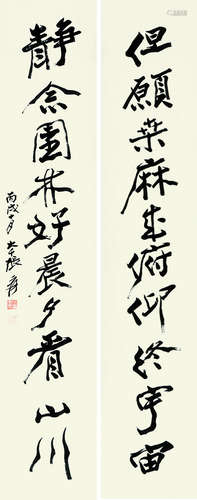 但願桑麻成俯仰終宇宙
靜念園林好晨夕看山川
丙戌月大千張爰